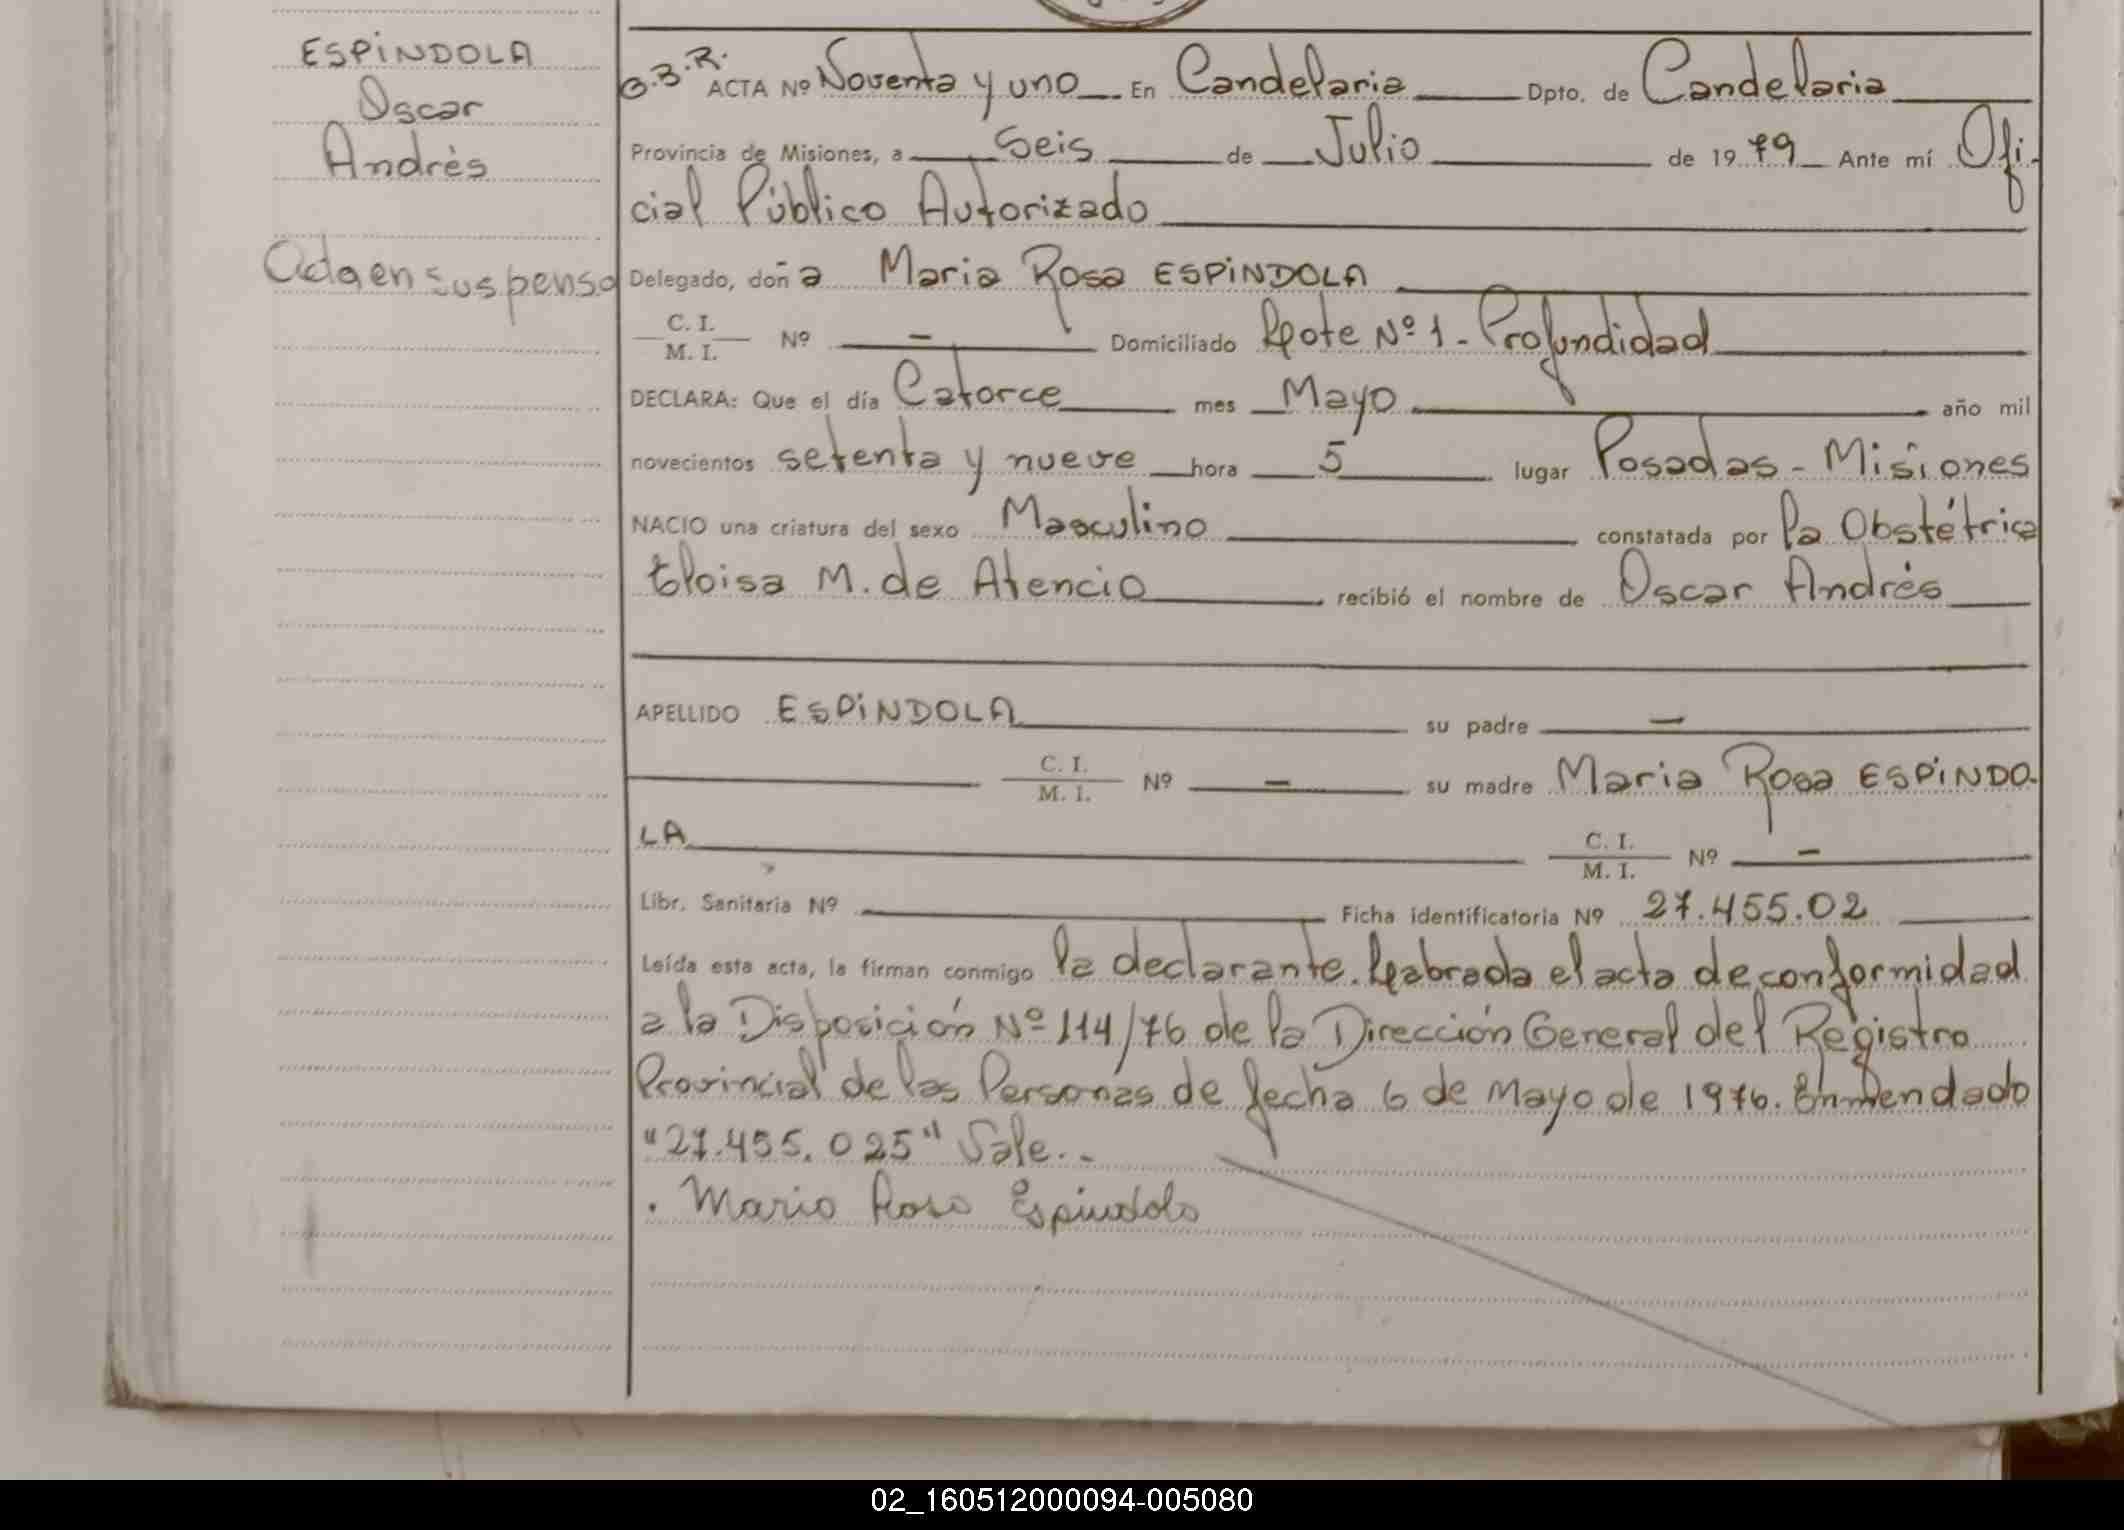 ESPINDOLA
Oscar
Andrés
Acta en suspenso
G.B.R.
ACTA Nº Noventa y uno En Candelaria Dpto. de Candelaria
Provincia de Misiones, a Seis de Julio de 1979 Ante mí Ofi-
cial Público Autorizado
Delegado, doña Maria Rosa ESPINDOLA
C. I.
M. I. Nº - Domiciliado Lote Nº 1 - Profundidad
DECLARA: Que el día Catorce mes Mayo año mil
novecientos setenta y nueve hora 5 lugar Posadas - Misiones
NACIO una criatura del sexo Masculino constatada por la Obstétrica
Eloisa M. de Atencio recibió el nombre de Oscar Andrés
APELLIDO ESPINDOLA su padre -
C. I.
M. I. Nº - su madre Maria Rosa ESPINDO-
LA C. I.
M. I. Nº -
Libr. Sanitaria Nº Ficha identificatoria Nº 27.455.02
Leída esta acta, la firman conmigo la declarante. Labrada el acta de conformidad
a la Disposición Nº 114/76 de la Dirección General del Registro
Provincial de las Personas de fecha 6 de Mayo de 1976. Enmendado
"27.455.025" Vale.-
. Maria Rosa Espindola
02_160512000094-005080